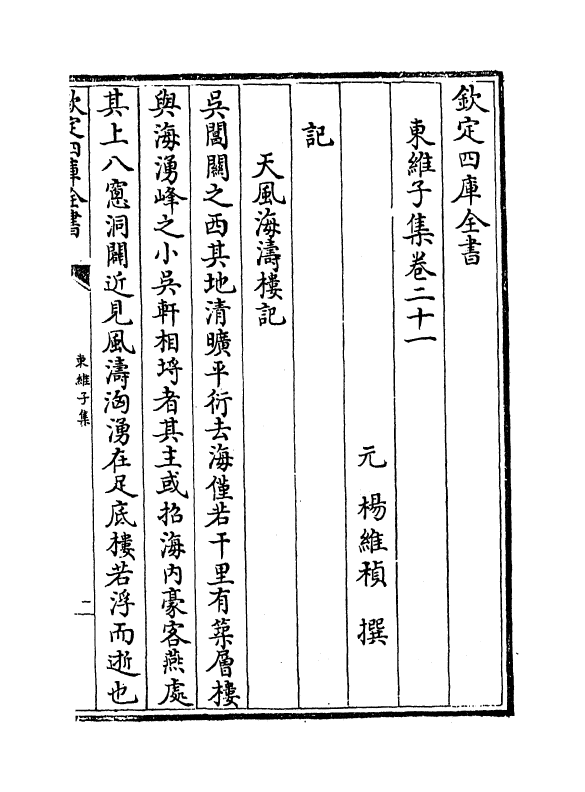 欽定四庫全書
東維子集卷二十一
元 楊維楨 撰
記
天風海濤樓記
吳閶關之西其地清曠平衍去海僅若干里有築層樓
與海湧峰之小吳軒相埒者其主或招海内豪客燕處
其上八窻洞闢近見風濤洶湧在足底樓若浮而逝也
欽定四庫全書
東維子集